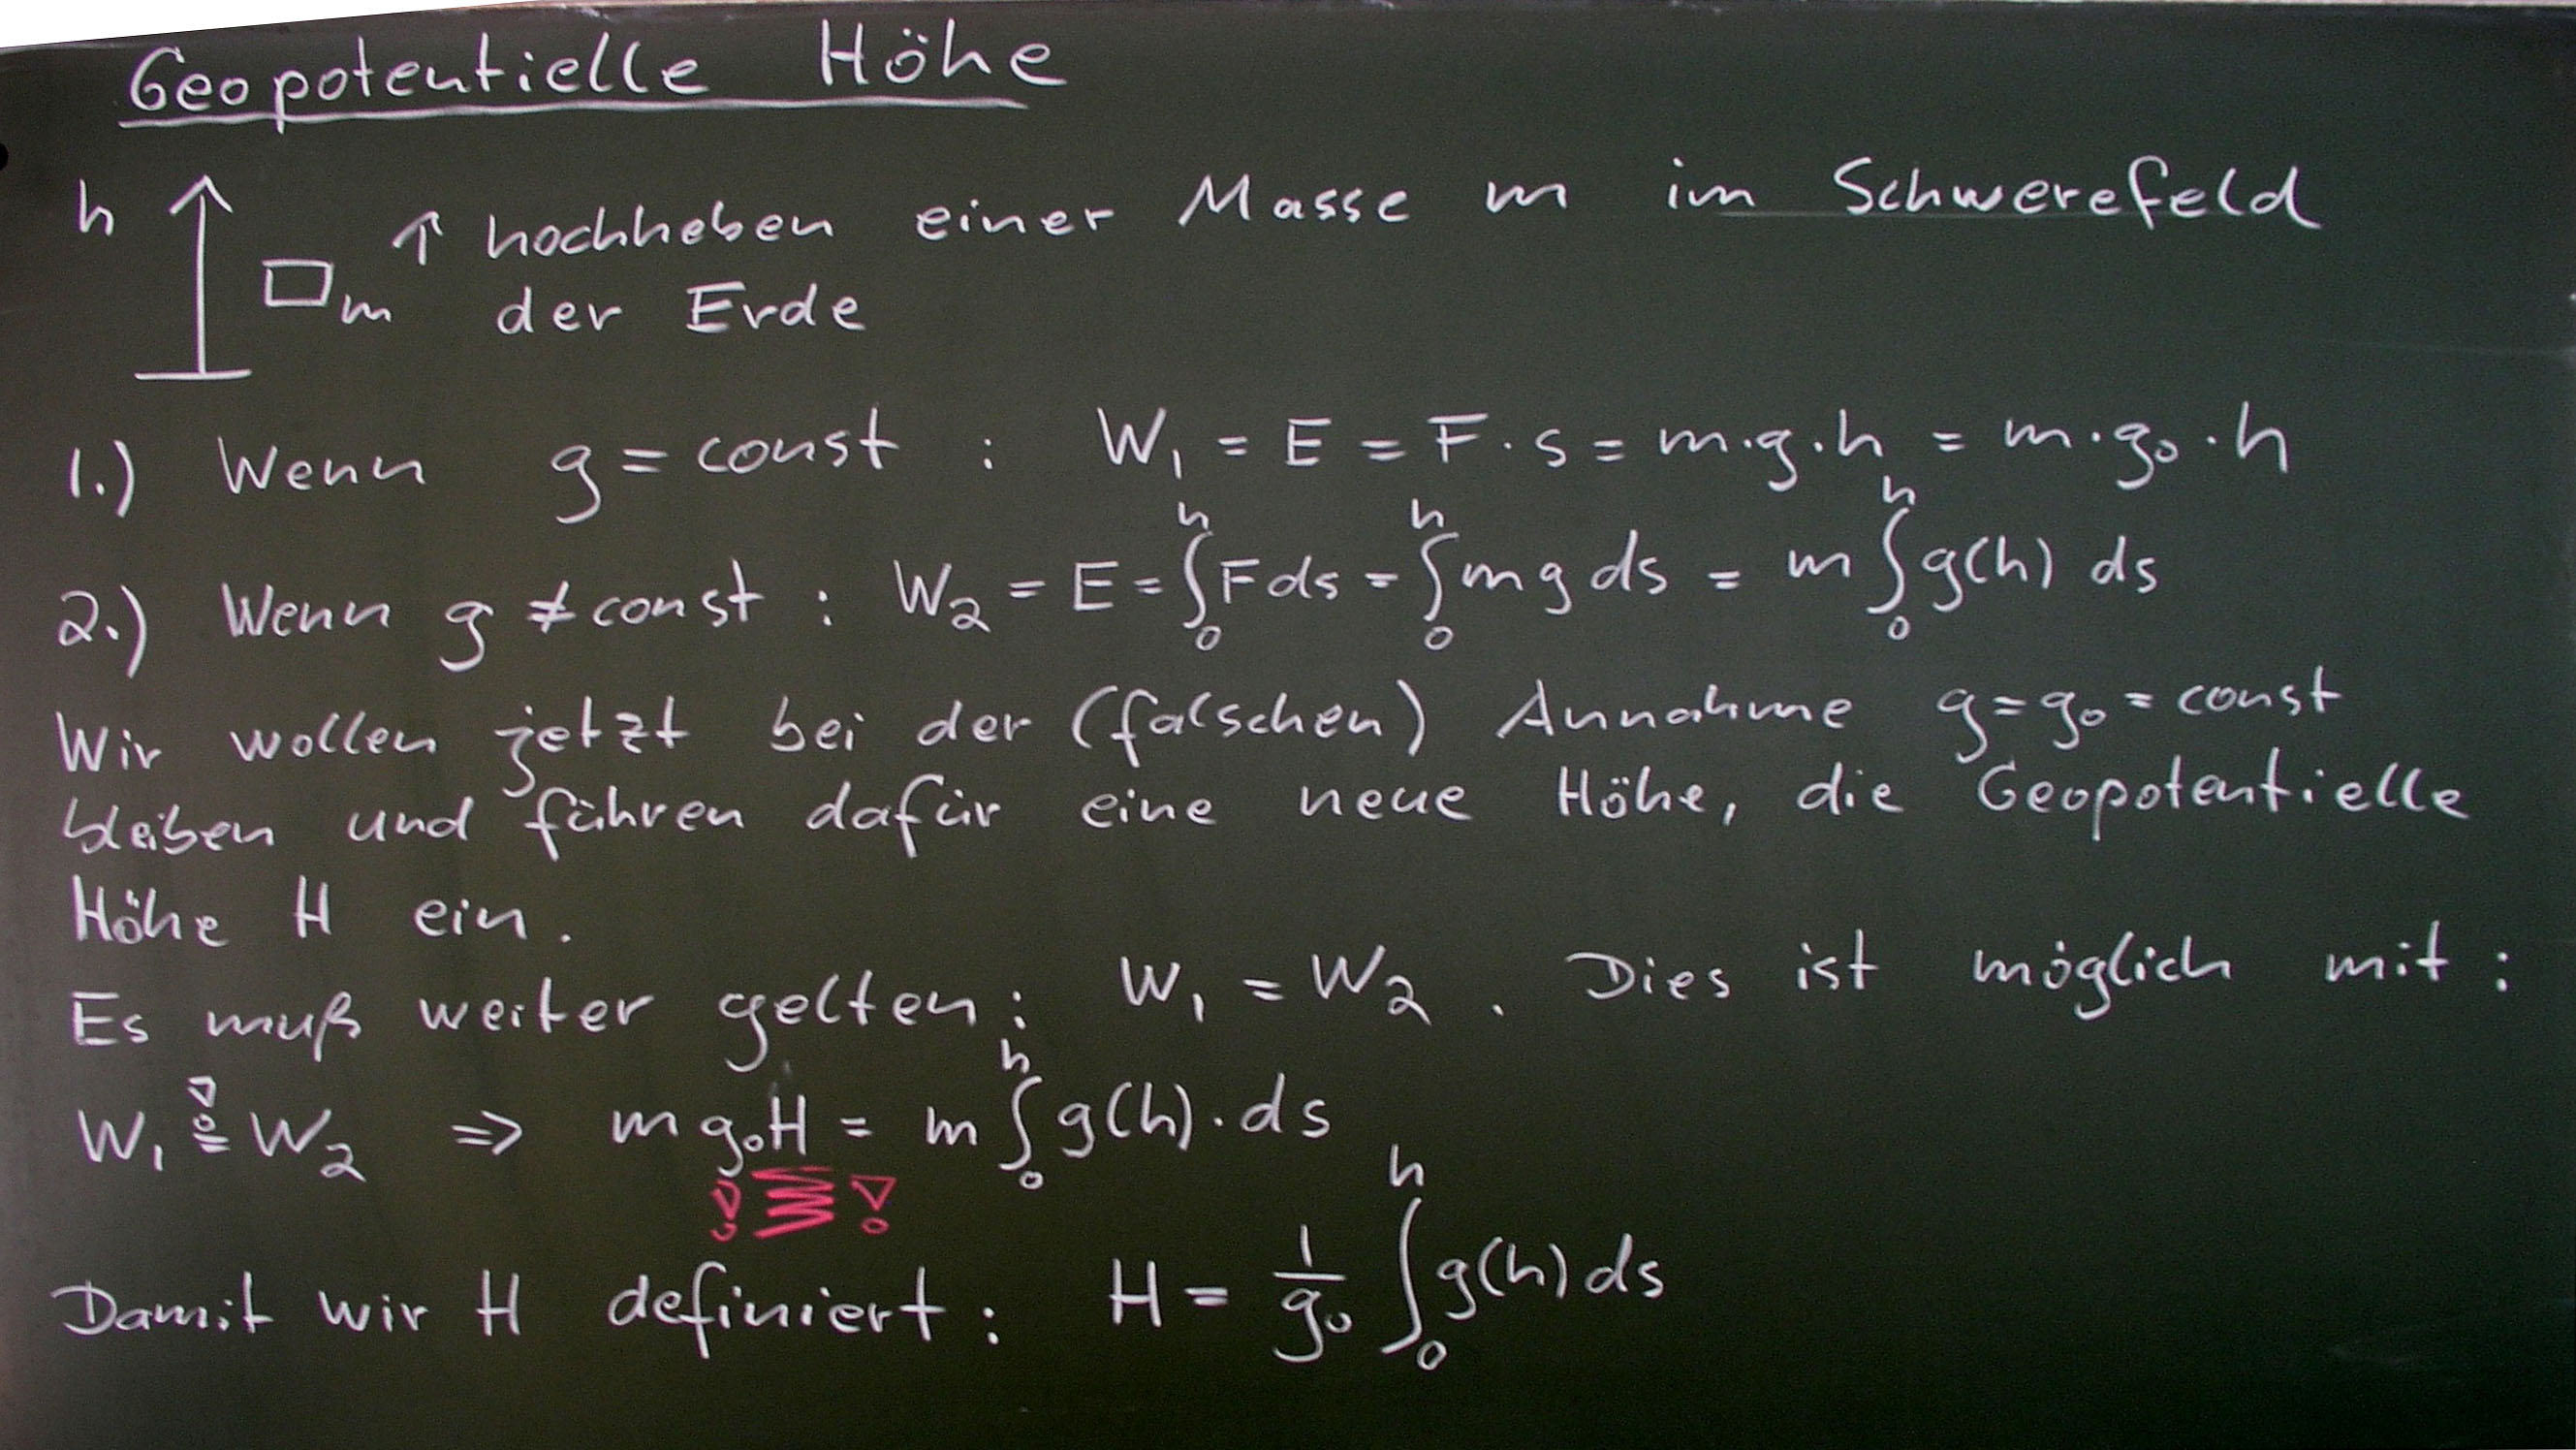 Geopotentielle Höhe
h ↑ hochheben einer Masse m im Schwerefeld
m der Erde
1.) Wenn g = const : W₁ = E = F · s = m·g·h = m·g₀·h
2.) Wenn g ≠ const : W₂ = E = ∫₀ʰ F ds = ∫₀ʰ m g ds = m ∫₀ʰ g(h) ds
Wir wollen jetzt bei der (falschen) Annahme g = g₀ = const
bleiben und führen dafür eine neue Höhe, die Geopotentielle
Höhe H ein.
Es muß weiter gelten: W₁ = W₂ . Dies ist möglich mit :
W₁ =! W₂ ⇒ m g₀ H = m ∫₀ʰ g(h) · ds
! !
Damit wir H definiert : H = 1/g₀ ∫₀ʰ g(h) ds